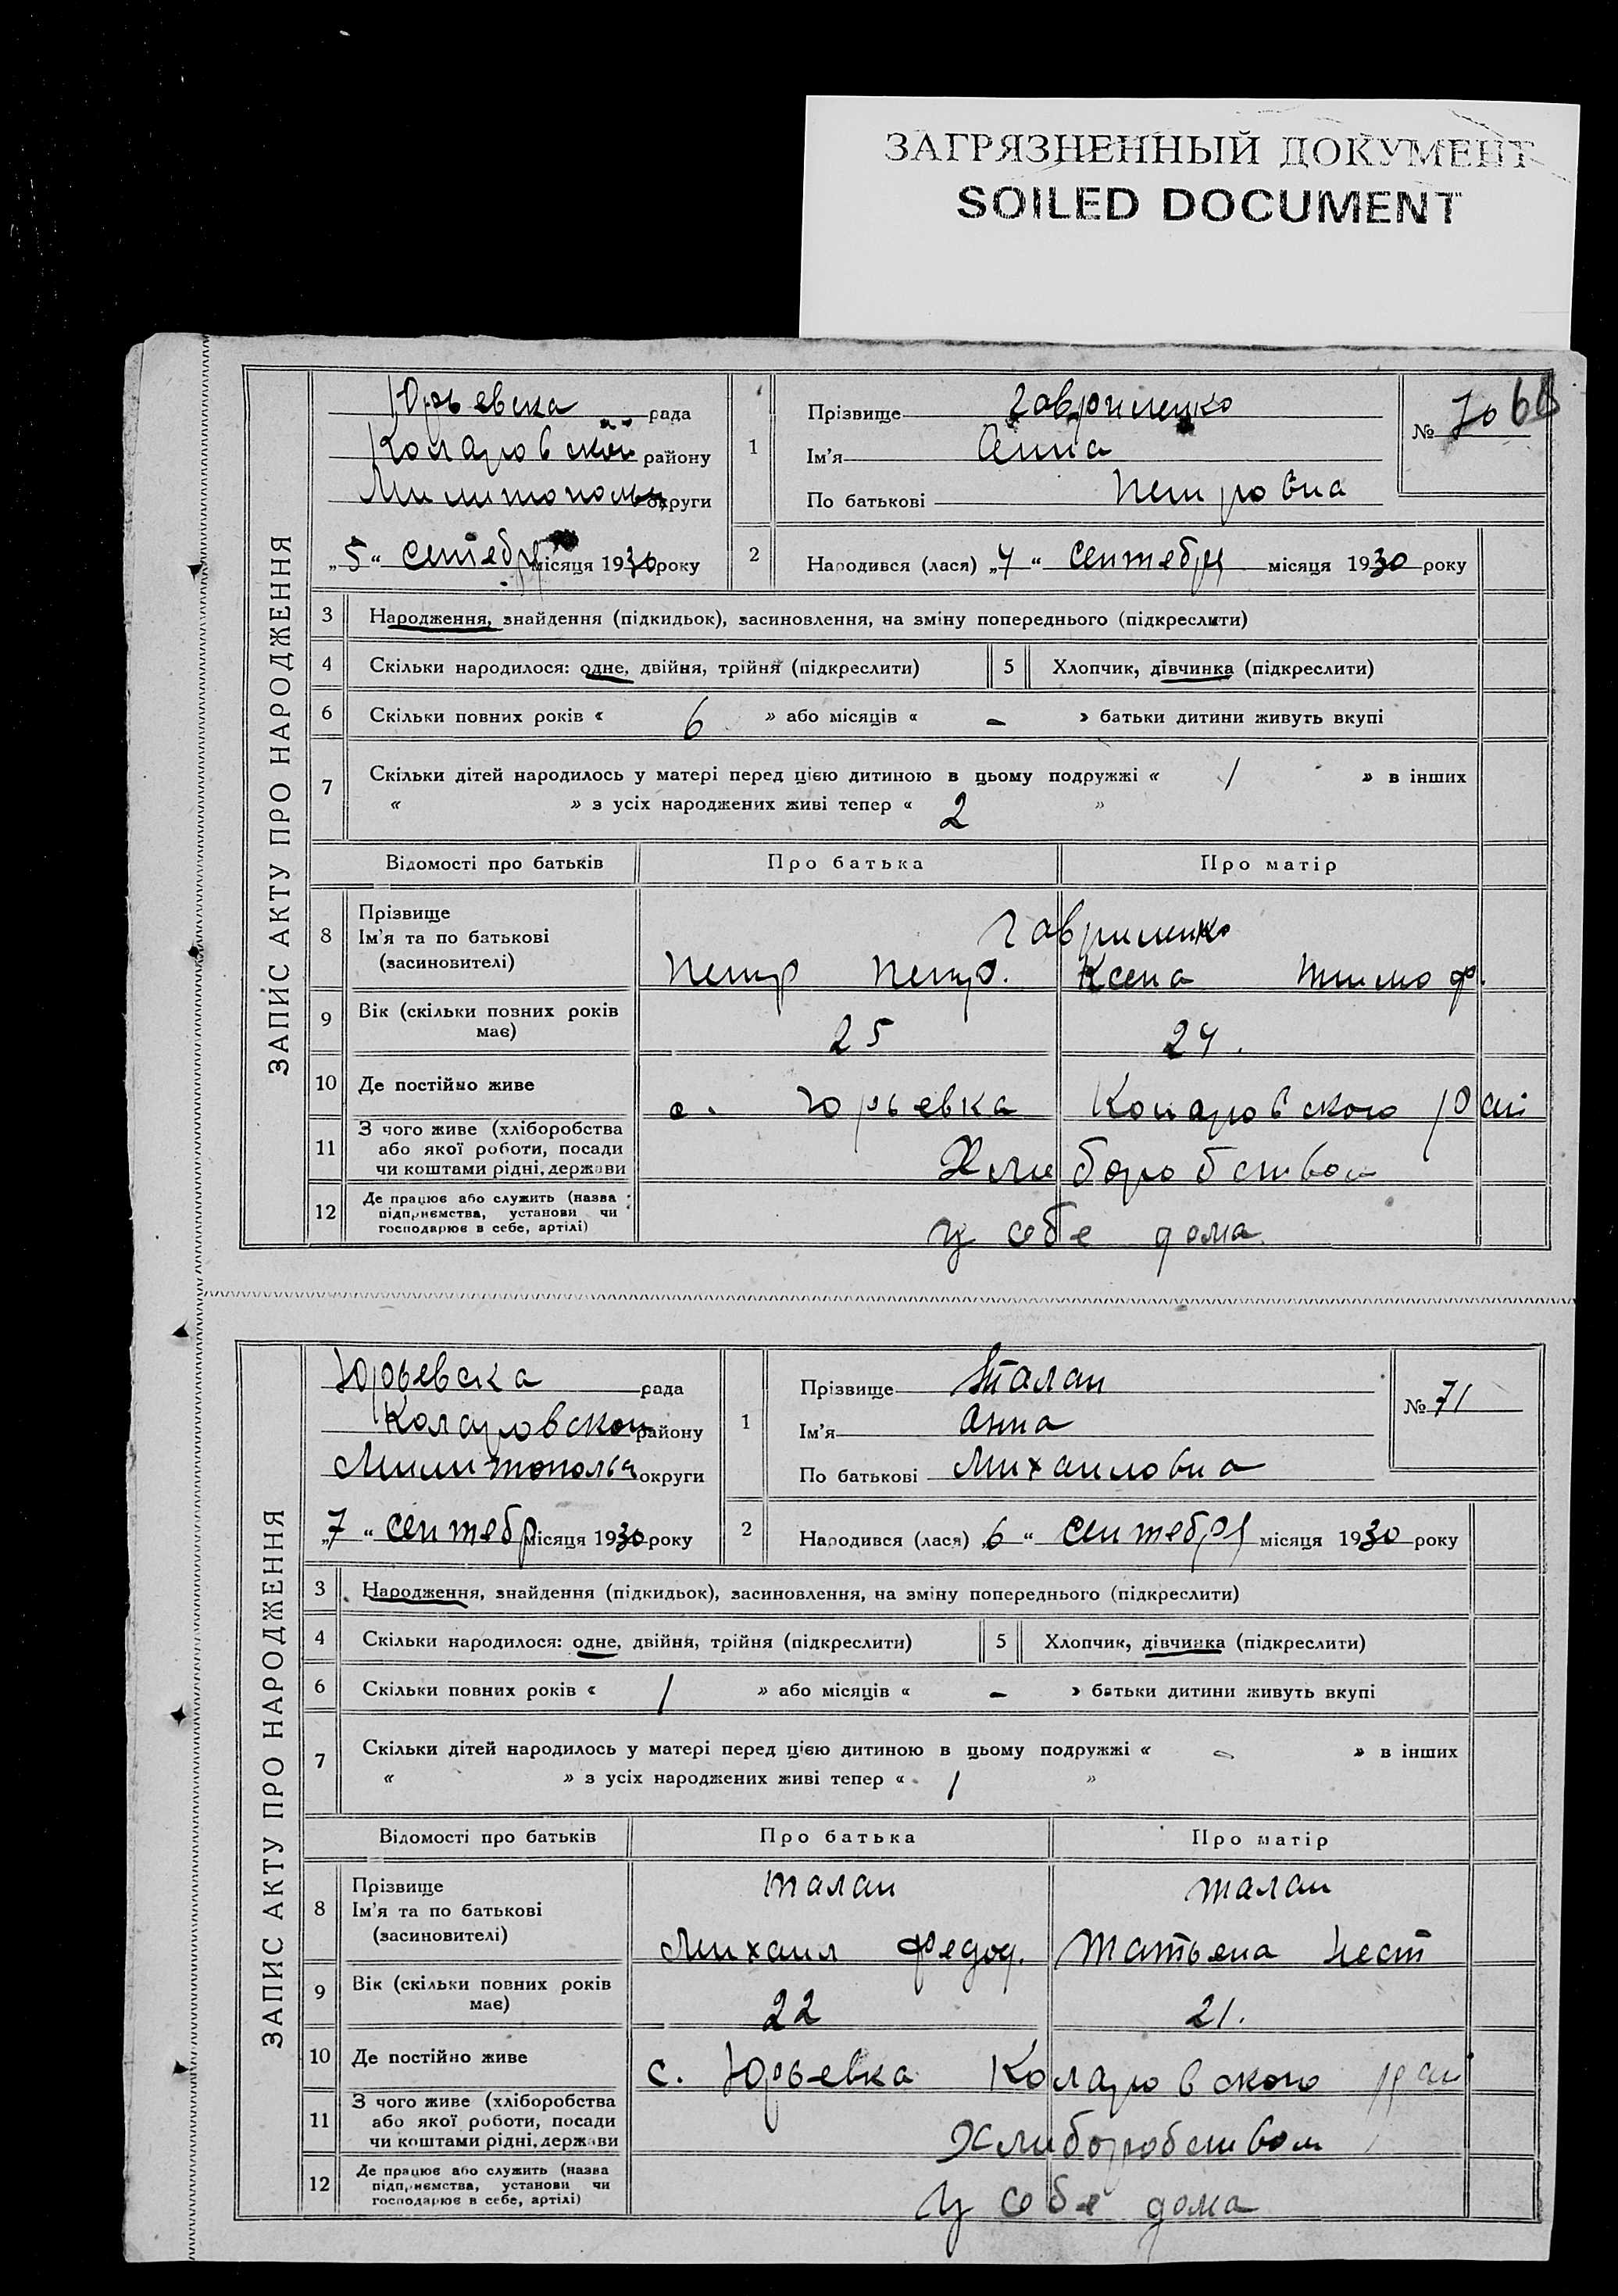 ЗАГРЯЗНЕННЫЙ ДОКУМЕНТ
SOILED DOCUMENT
ЗАПИС АКТУ ПРО НАРОДЖЕННЯ
Юрьевска рада
Коларовской району
Милитополь округи
„5“ сентебр місяця 1930 року
1 Прізвище Гавриленко
Ім'я Анна
По батькові Петровна
№ 70 60
2 Народився (лася) „4“ сентебря місяця 1930 року
3 Народження, знайдення (підкидьок), засиновлення, на зміну попереднього (підкреслити)
4 Скільки народилося: одне, двійня, трійня (підкреслити) 5 Хлопчик, дівчинка (підкреслити)
6 Скільки повних років « 6 » або місяців « – » батьки дитини живуть вкупі
7 Скільки дітей народилось у матері перед цією дитиною в цьому подружжі « 1 » в інших
« » з усіх народжених живі тепер « 2 »
Відомості про батьків Про батька Про матір
8 Прізвище
Ім'я та по батькові
(засиновителі)
Гавриленко
Петр Петр. Ксена Тимоф.
9 Вік (скільки повних років має) 25 24.
10 Де постійно живе с. Юрьевка Коларовского рай
11 З чого живе (хліборобства
або якої роботи, посади
чи коштами рідні, держави
Хлиборобством
12 Де працює або служить (назва
підприємства, установи чи
господарює в себе, артілі)
у себе дома.
ЗАПИС АКТУ ПРО НАРОДЖЕННЯ
Юрьевска рада
Коларовской району
Милитополь округи
„7“ сентебр місяця 1930 року
1 Прізвище Талан
Ім'я Анна
По батькові Михаиловна
№ 71
2 Народився (лася) „6“ сентебря місяця 1930 року
3 Народження, знайдення (підкидьок), засиновлення, на зміну попереднього (підкреслити)
4 Скільки народилося: одне, двійня, трійня (підкреслити) 5 Хлопчик, дівчинка (підкреслити)
6 Скільки повних років « 1 » або місяців « – » батьки дитини живуть вкупі
7 Скільки дітей народилось у матері перед цією дитиною в цьому подружжі « – » в інших
« » з усіх народжених живі тепер « 1 »
Відомості про батьків Про батька Про матір
8 Прізвище
Ім'я та по батькові
(засиновителі)
Талан Талан
Михаил Федод. Татьена Нест
9 Вік (скільки повних років має) 22 21.
10 Де постійно живе с. Юрьевка Коларовского рай
11 З чого живе (хліборобства
або якої роботи, посади
чи коштами рідні, держави
Хлиборобством
12 Де працює або служить (назва
підприємства, установи чи
господарює в себе, артілі)
у себе дома